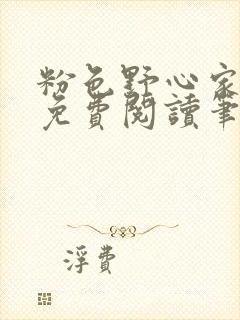 粉色野心家
免費閱讀筆
浮費